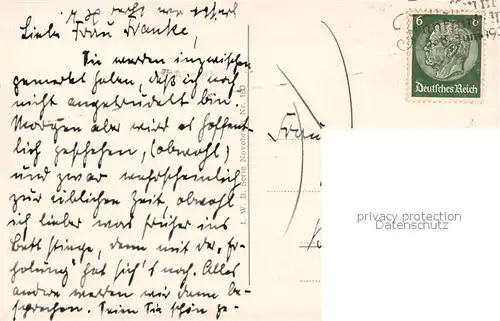 Liebe Frau Franke,
Sie werden inzwischen
gemerkt haben, daß ich noch
nicht angetrudelt bin.
Morgen aber wird es hoffent-
lich geschehen, (obwohl)
und zwar wahrscheinlich
zur üblichen Zeit, obwohl
ich lieber was früher ins
Bett stiege, denn mit der „Er-
holung" hat sich's noch. Alles
andere werden wir dann be-
sprechen. Seien Sie schön ge-
I. W. B. Serie Novo Nr. 160
6 6
Deutsches Reich
Frau
privacy protection
Datenschutz